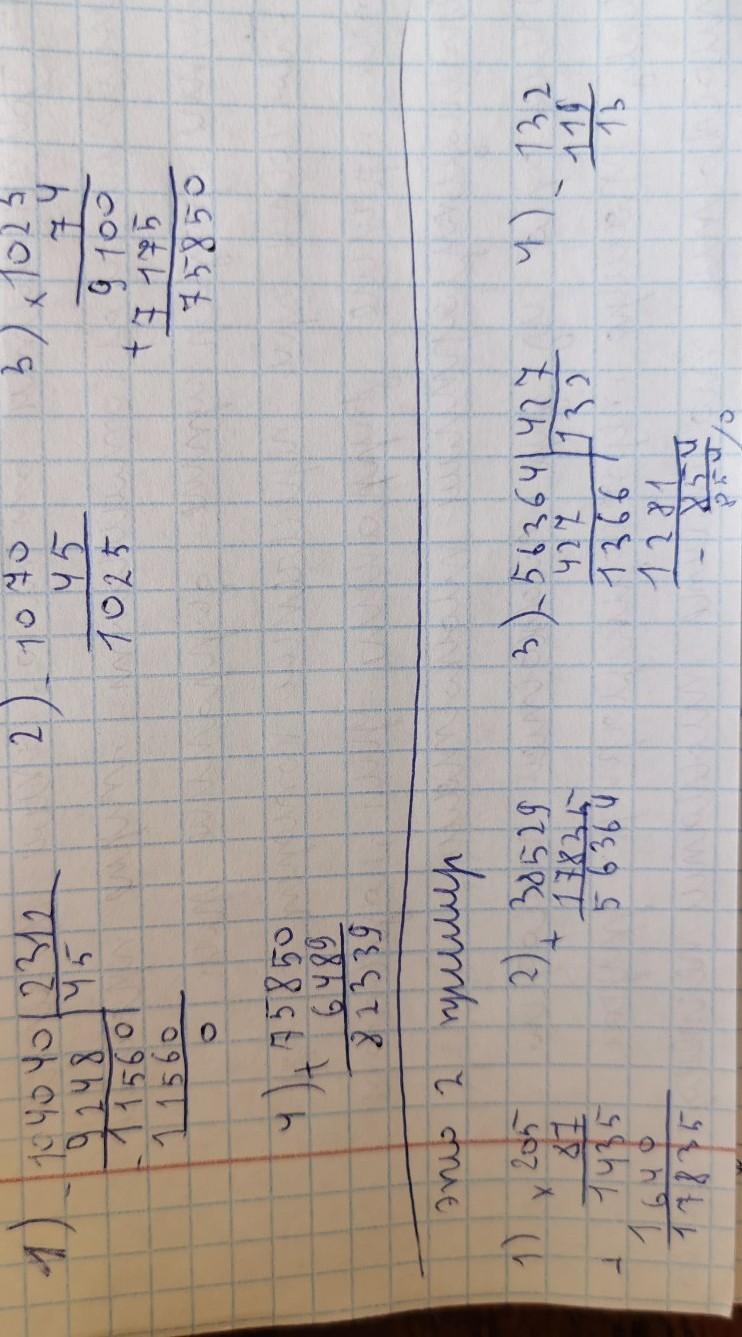 1) - 104040 | 2312
9248 | 45
- 11560
11560
0
2) - 1070
45
1025
3) x 1025
74
9100
+ 7175
75850
4) + 75850
6489
82339
это 2 пример
1) x 205
87
+ 1435
1640
17835
2) + 38529
17835
56364
3) - 56364 | 427
427 | 132
1366
1281
- 854
854
0
4) - 132
119
13